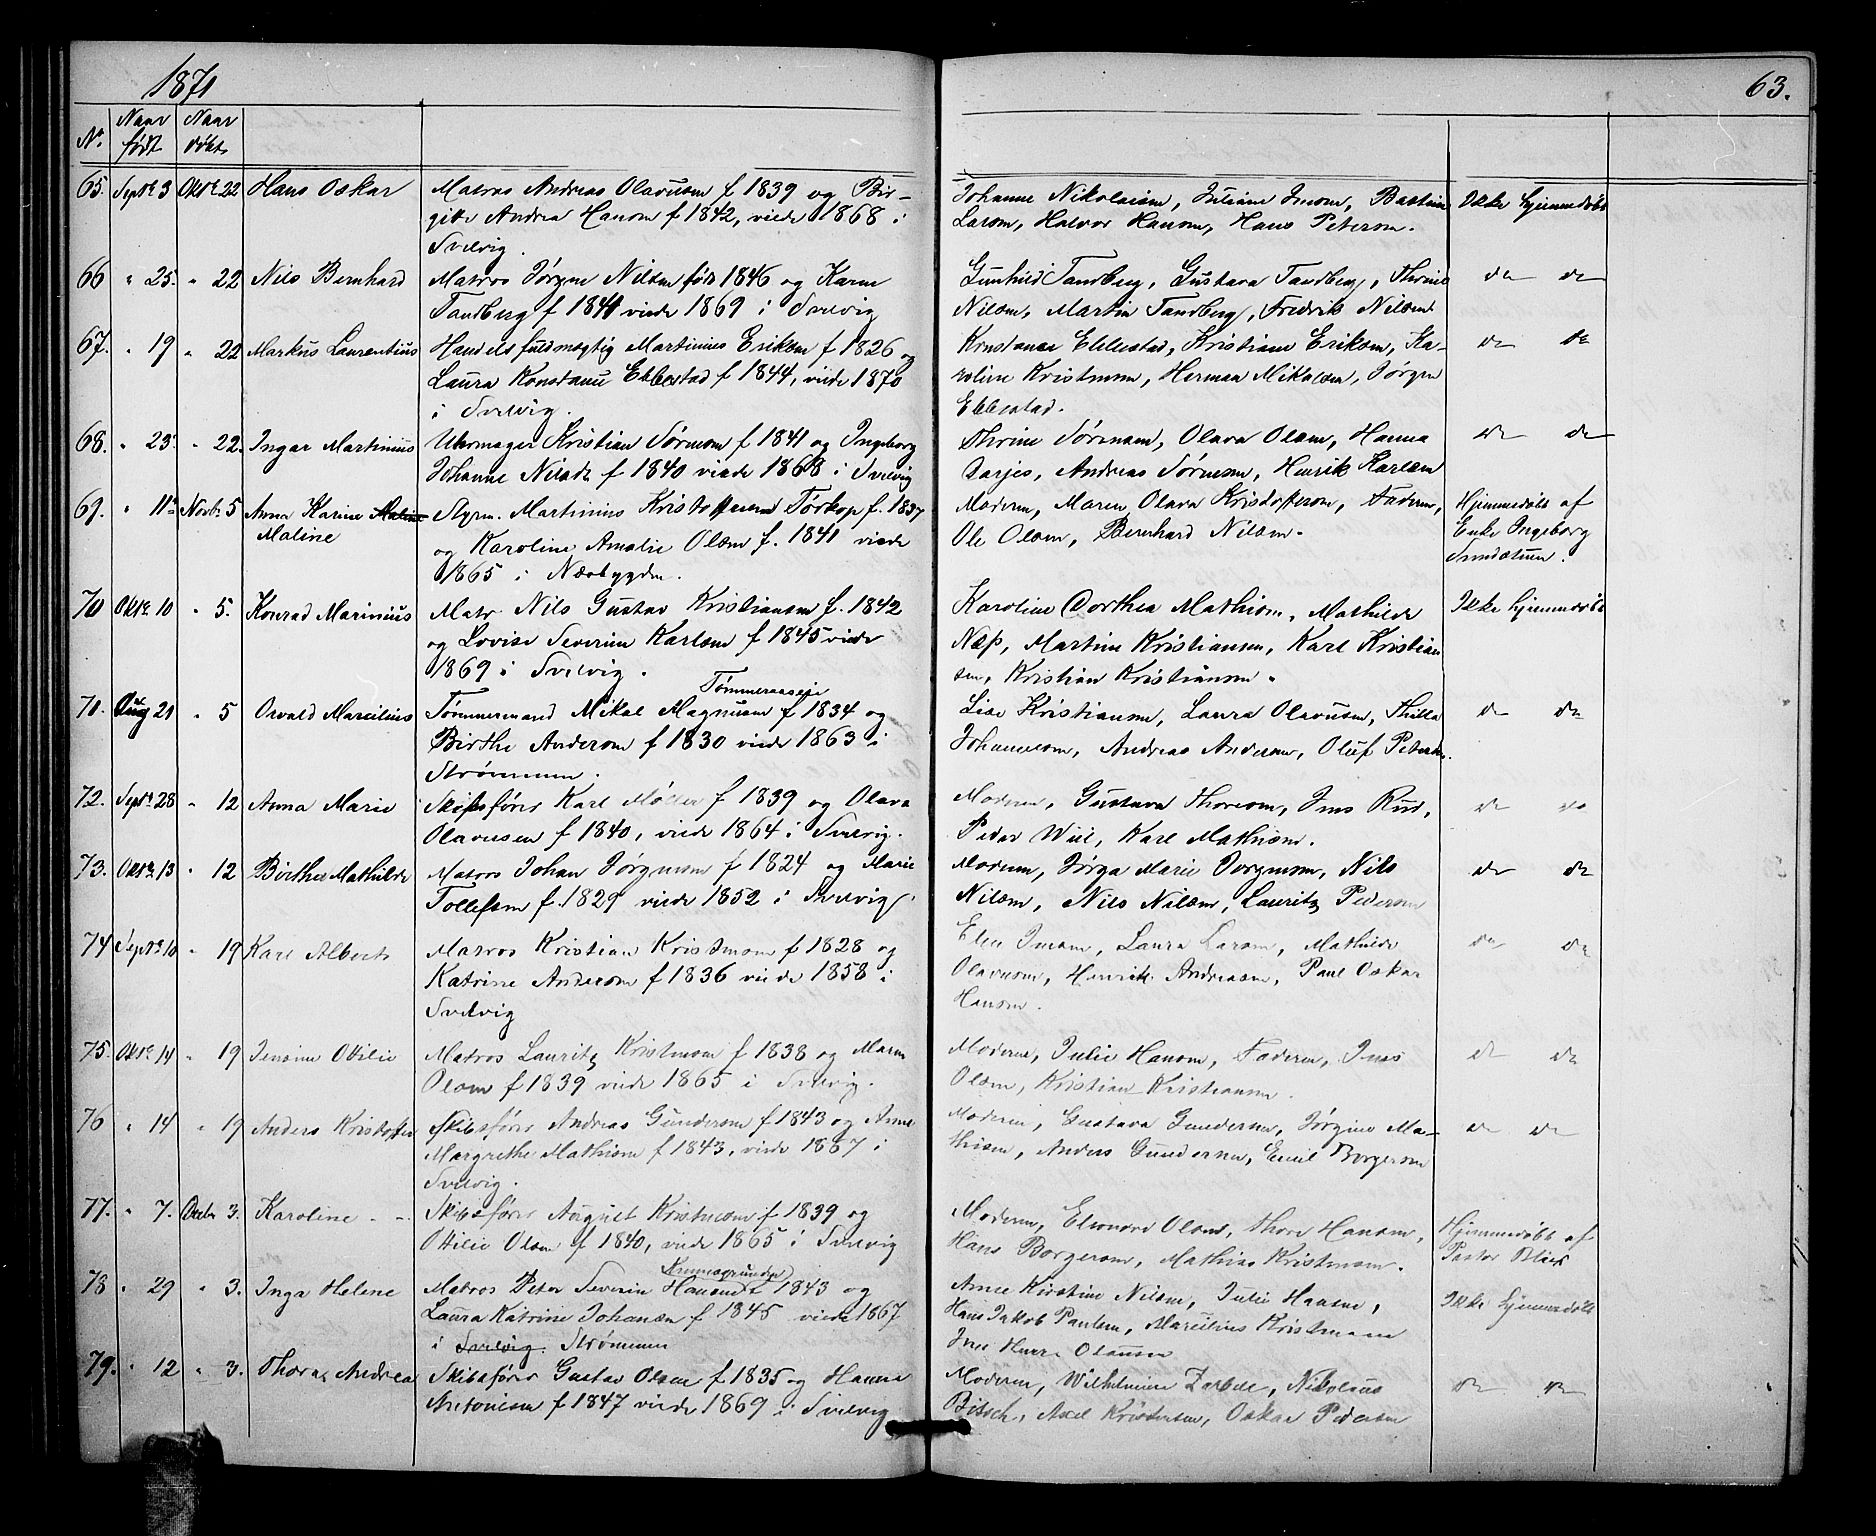 1871
63.
No. Naar født Naar døbt
65. Septbr 3 Oktbr 22 Hans Oskar Matros Andreas Olavusen f 1839 og Bir-
gitte Andrea Hansen f 1842, viede 1868 i
Svelvig.
Johanne Nikolaisen, Juliane Jensen, Bastine
Larsen, Halvor Hansen, Hans Petersen.
Ikke hjemmedøbt
66 " 25. " 22 Nils Bernhard Matros Jørgen Nilsen født 1846 og Karen
Tandberg f 1841 viede 1869 i Svelvig
Gunhild Tandberg, Gustava Tandberg, Thrine
Nilsen, Martin Tandberg, Fredrik Nilsen
do do
67. " 19 " 22 Markus Laurentius Handelsfuldmægtig Martinius Eriksen f 1826 og
Laura Konstance Ebbestad f 1844, viede 1870
i Svelvig.
Konstance Ebbestad, Kristiane Eriksen, Ka-
roline Kristensen, Herman Mikalsen, Jørgen
Ebbestad.
do do
68. " 23. " 22. Ingar Martinius Uhrmager Kristian Sørensen f 1841 og Ingeborg
Johanne Nilsdtr f 1840 viede 1868 i Svelvig
Thrine Sørensen, Olava Olsen, Hanna
Darjes, Andreas Sørensen, Henrik Karlsen
do do
69. " 11te Novbr 5 Anna Karine Maline
Maline
Styrm. Martinius Kristoffersen Tørkop f. 1837
og Karoline Amalie Olsen f. 1841 viede
1865 i Næsbygden.
Moderen, Maren Olava Kristoffersen, Faderen,
Ole Olsen, Bernhard Nilsen.
Hjemmedøbt af
Enke Ingeborg
Sandstuen.
70 Oktbr 10 " 5. Konrad Marinius Matr. Nils Gustav Kristiansen f. 1842
og Lovise Severine Karlsen f 1845 viede
1869 i Svelvig.
Karoline Dorthea Mathisen, Mathilde
Næp, Martine Kristiansen, Karl Kristian
sen, Kristian Kristiansen.
Ikke hjemmedøbt
71. Aug 21 " 5 Osvald Marcilius Tømmermand Mikal Magnusen Tømmeraaseje f 1834 og
Birthe Andersen f 1830 viede 1863 i
Strømmen.
Lise Kristiansen, Laura Olavusen, Thilla
Johannesen, Andreas Andersen, Oluf Petersen.
do do
72. Septbr 28 " 12 Anna Marie Skibsfører Karl Møller f 1839 og Olava
Olavusen f 1840, viede 1864 i Svelvig.
Moderen, Gustava Thoresen, Jens Rud,
Peder Wiil, Karl Mathisen.
do do
73. Oktbr 13 " 12 Birthe Mathilde Matros Johan Jørgensen f 1824 og Marie
Tollefsen f. 1829 viede 1852 i Svelvig.
Moderen, Jørga Marie Jørgensen, Nils
Nilsen, Nils Nilsen, Lauritz Pedersen
do do
74 Septbr 10 " 19 Karl Albert Matros Kristian Kristensen f 1828 og
Katrine Andersen f 1836 viede 1858 i
Svelvig
Elen Jensen, Laura Larsen, Mathilde
Olavusen, Henrik Andreasen, Paul Oskar
Hansen.
do do
75. Oktbr 14 " 19 Jensine Otilie Matros Lauritz Kristensen f 1838 og Maren
Olsen f 1839 viede 1865 i Svelvig.
Moderen, Julie Hansen, Faderen, Jens
Olsen, Kristian Kristiansen.
do do
76 " 14 " 19 Anders Kristoffer Skibsfører Andreas Gundersen f 1843 og Anne
Margrethe Mathisen f 1843, viede 1867 i
Svelvig.
Moderen, Gustava Gundersen, Jørgine Ma-
thisen, Anders Gundersen, Emil Borgersen
do do
77. " 7. Decbr 3. Karoline Skibsfører August Kristensen f 1839 og
Otilie Olsen f 1840, viede 1865 i Svelvig
Moderen, Eleonore Olsen, Thore Hansen,
Hans Borgersen, Mathias Kristensen.
Hjemmedøbt af
Pastor Blær
78 " 29 " 3. Inga Helene Matros Peter Severin Hansen f 1843 og
Laura Katrine Johansen f 1845 viede 1867
i Svelvig. Strømmen
Anne Kirstine Nilsen, Julie Hansen,
Hans Jakob Paulsen, Marcilius Kristensen
Jens Olausen
Ikke hjemmedøbt
79. " 12 " 3. Thora Andrea Skibsfører Gustav Olsen f 1835 og Hanna
Antonisen f 1847 viede 1869 i Svelvig
Moderen, Wilhelmine Zarbell, Nikolaus
Bisch, Axel Kristensen, Oskar Pedersen
do do